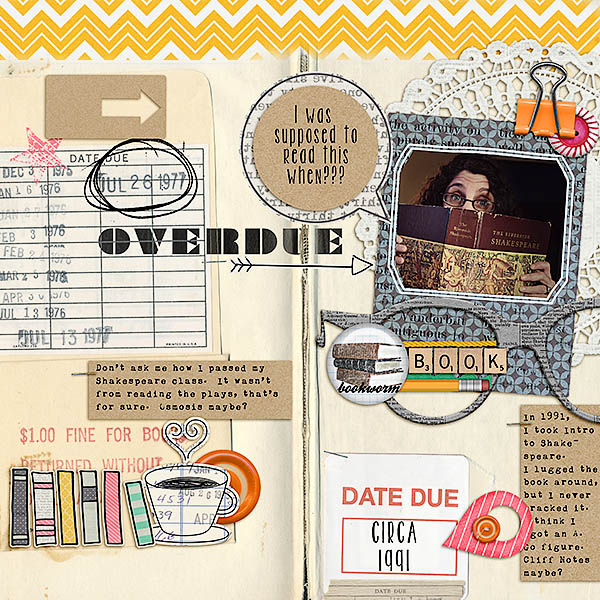 DATE DUE
DEC 3 1975
JAN 1 6 1976
JUL 26 1977
FEB 3 1976
MAR 2 5 1976
APR 1976
JUL 13 1976
JUL 13 1977
PRINTED IN U.S.A.
OVERDUE
I was
supposed to
read this
when???
THE RIVERSIDE
SHAKESPEARE
Don't ask me how I passed my
Shakespeare class. It wasn't
from reading the plays, that's
for sure. Osmosis maybe?
$1.00 FINE FOR BOO
RETURNED WITHOUT
bookworm
BOOK
DATE DUE
CIRCA
1991
DATE DUE
In 1991,
I took Intro
to Shake-
speare.
I lugged the
book around,
but I never
cracked it.
I think I
got an A.
Go figure.
Cliff Notes
maybe?